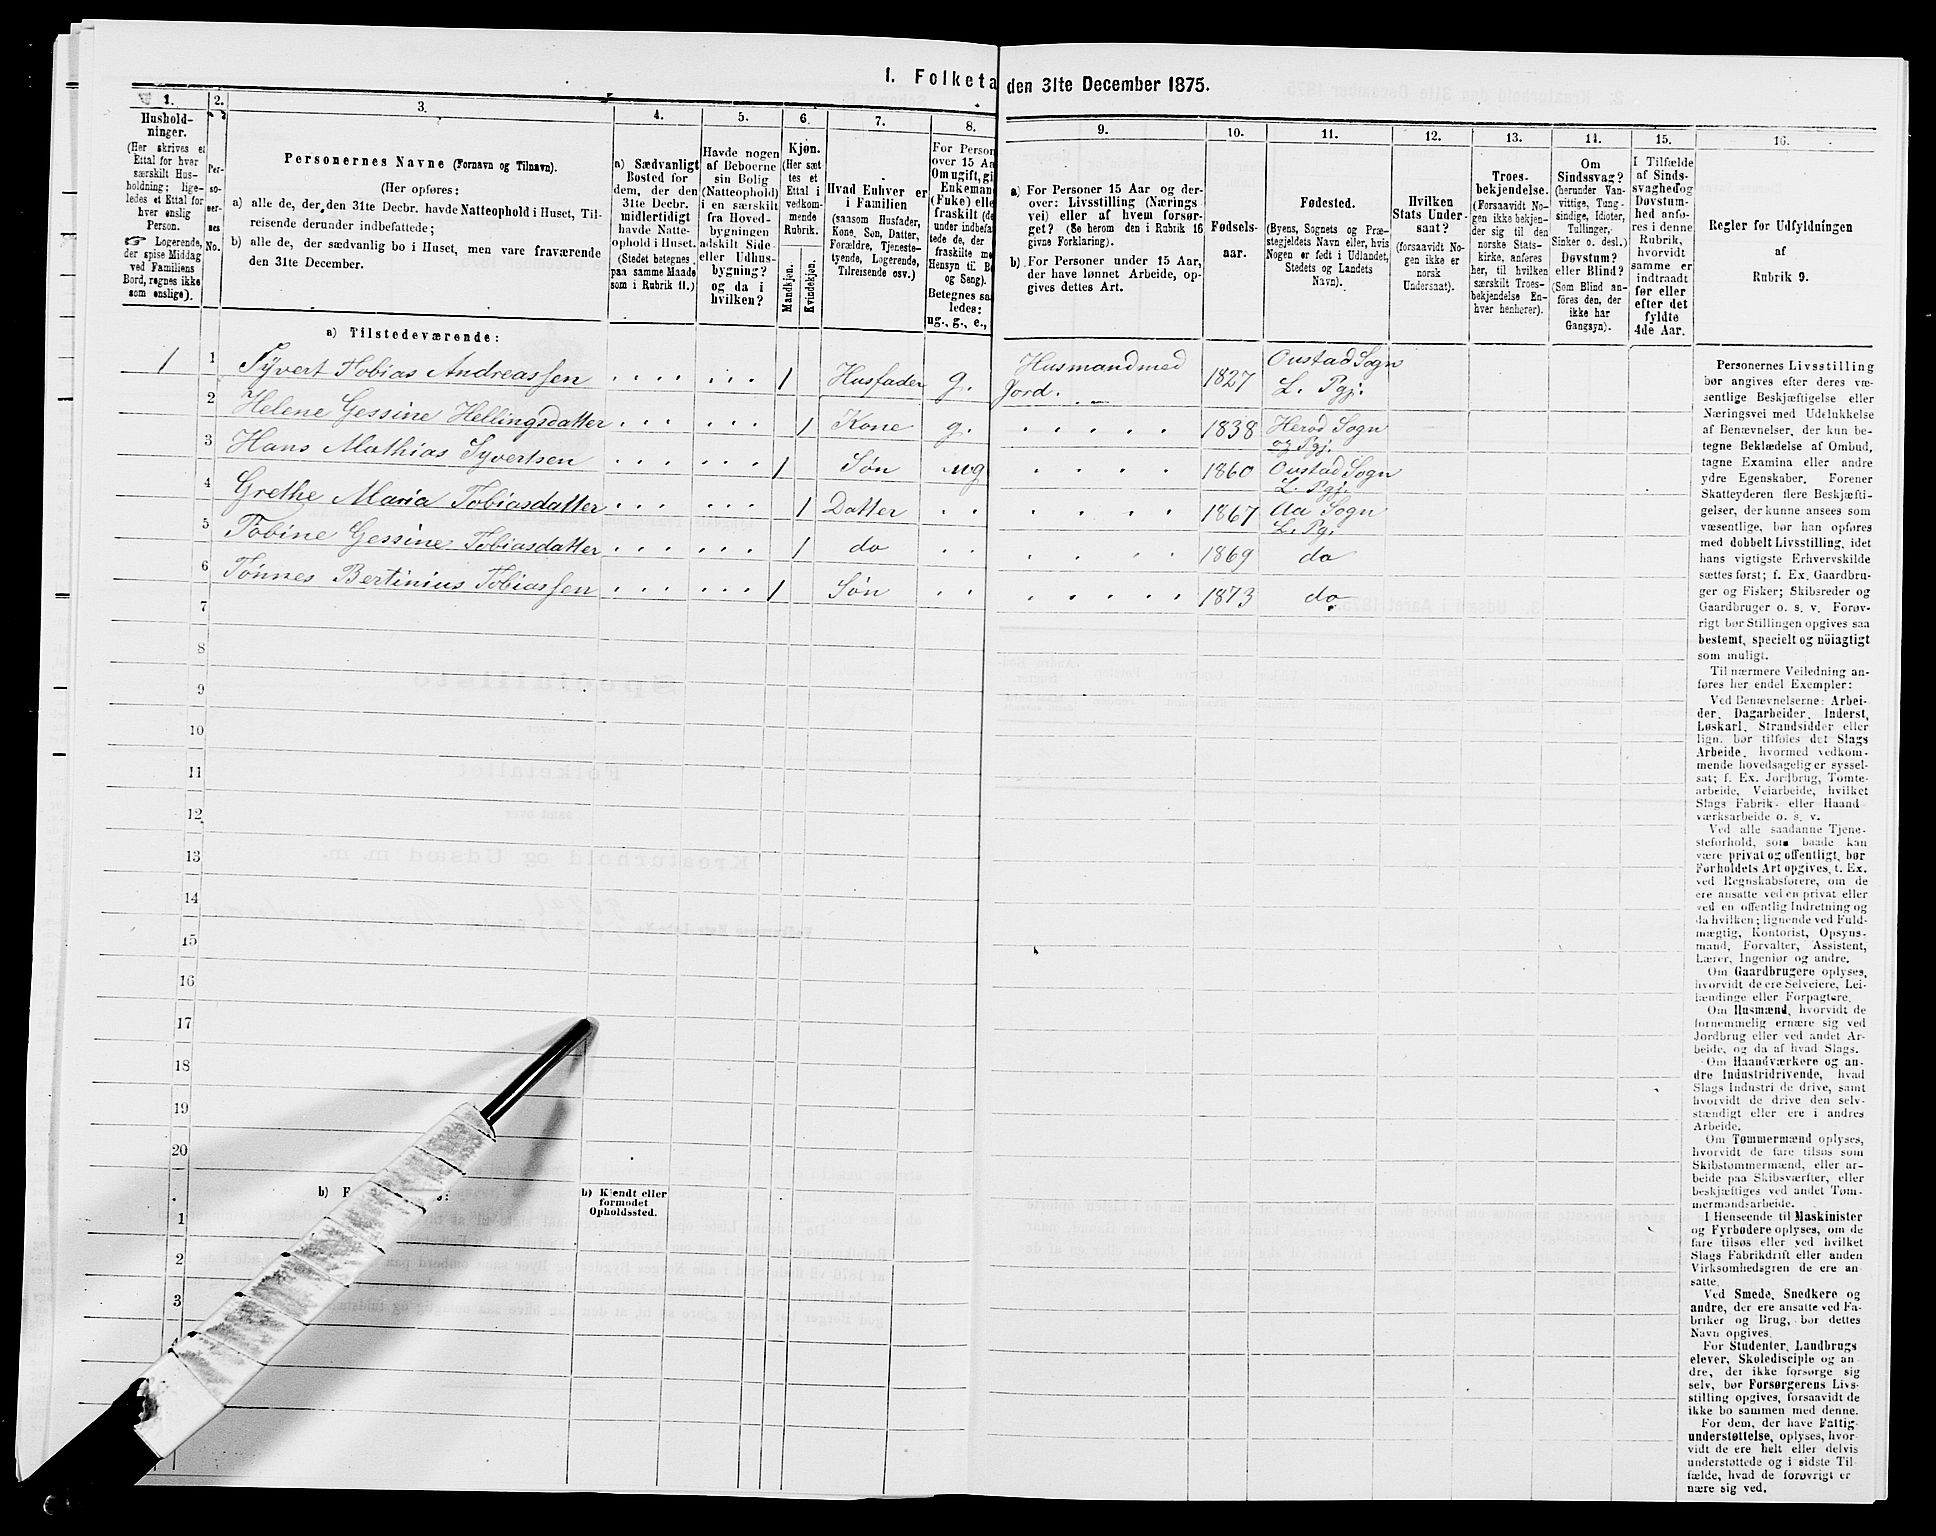 1. Folketa den 31te December 1875.
1.
Hushold-
ninger.
(Her skrives et
Ettal for hver
særskilt Hus-
holdning; lige-
ledes et Ettal for
hver enslig
Person.
☞ Logerende,
der spise Middag
ved Familiens
Bord, regnes ikke
som enslige).
2.
Per-
so-
ner-
nes
No.
3.
Personernes Navne (Fornavn og Tilnavn).
(Her opføres:
a) alle de, der den 31te Decbr. havde Natteophold i Huset, Til-
reisende derunder indbefattede;
b) alle de, der sædvanlig bo i Huset, men vare fraværende
den 31te December.
4.
a) Sædvanligt
Bosted for
dem, der den
31te Decbr.
midlertidigt
havde Natte-
ophold i Huset.
(Stedet betegnes
paa samme Maade
som i Rubrik 11.)
5.
Havde nogen
af Beboerne
sin Bolig
(Natteophold)
i en særskilt
fra Hoved-
bygningen
adskilt Side-
eller Udhus-
bygning?
og da i
hvilken?
6.
Kjøn.
(Her sæt
tes et
Ettal i
vedkom-
mende
Rubrik.
Mandkjøn.
Kvindekjøn.
7.
Hvad Enhver er
i Familien
(saasom Husfader,
Kone, Søn, Datter,
Forældre, Tjeneste-
tyende, Logerende,
Tilreisende osv.)
8.
For Person
over 15 Aa
Om ugift, gi
Enkeman
(Fuke) elle
fraskilt (de
under indbefa
tede de, der
fraskilte me
Hensyn til Bo
og Seng).
Betegnes sa
ledes:
ug., g., e.,
9.
a) For Personer 15 Aar og der-
over: Livsstilling (Nærings
vei) eller af hvem forsør-
get? (Se herom den i Rubrik 16
givne Forklaring).
b) For Personer under 15 Aar,
der have lønnet Arbeide, op-
gives dettes Art.
10.
Fødsels-
aar.
11.
Fødested.
(Byens, Sognets og Præ-
stegjeldets Navn eller, hvis
Nogen er født i Udlandet,
Stedets og Landets
Navn).
12.
Hvilken
Stats Under-
saat?
(forsaavidt No-
gen ikke er
norsk
Undersaat).
13.
Troes-
bekjendelse.
(Forsaavidt No-
gen ikke bekjen-
der sig til den
norske Stats-
kirke, anføres
her, til hvilken
særskilt Troes-
bekjendelse En-
hver henhører).
14.
Om
Sindssvag?
(herunder Van-
vittige, Tung-
sindige, Idioter,
Tullinger,
Sinker o. desl.)
Døvstum?
eller Blind?
(Som Blind an-
føres den, der
ikke har
Gangsyn).
15.
I Tilfælde
af Sinds-
svaghed og
Døvstum-
hed anfø-
res i denne
Rubrik,
hvorvidt
samme er
indtraadt
før eller
efter det
fyldte
4de Aar.
16.
Regler for Udfyldningen
af
Rubrik 9.
a) Tilstedeværende:
1 1 Syvert Tobias Andreassen 1 Husfader g. Husmand med Jord. 1827 Oustad Sogn L. Pgj.
2 Helene Gessine Hellingsdatter 1 Kone g. 1838 Herod Sogn og Pgj.
3 Hans Mathias Syvertsen 1 Søn ug 1860 Oustad Sogn L. Pgj.
4 Grethe Maria Tobiasdatter 1 Datter 1867 Aa Sogn L. Pg.
5 Tobine Gessine Tobiasdatter 1 do 1869 do
6 Tønnes Bertinius Tobiassen 1 Søn 1873 do
7
8
9
10
11
12
13
14
15
16
17
18
19
20
b) F
b) Kjendt eller
formodet
Opholdssted.
1
2
3
4
Personernes Livsstilling
bør angives efter deres væ-
sentlige Beskjæftigelse eller
Næringsvei med Udelukkelse
af Benævnelser, der kun be-
tegne Beklædelse af Ombud,
tagne Examina eller andre
ydre Egenskaber. Forener
Skatteyderen flere Beskjæfti-
gelser, der kunne ansees som
væsentlige, bør han opføres
med dobbelt Livsstilling, idet
hans vigtigste Erhvervskilde
sættes først; f. Ex. Gaardbru-
ger og Fisker; Skibsreder og
Gaardbruger o. s. v. Forøv-
rigt bør Stillingen opgives saa
bestemt, specielt og nöiagtigt
som muligt.
Til nærmere Veiledning an-
føres her endel Exempler:
Ved Benævnelserne: Arbei-
der, Dagarbeider, Inderst,
Løskarl, Strandsidder eller
lign. bør tilføies det Slags
Arbeide, hvormed vedkom-
mende hovedsagelig er syssel-
sat; f. Ex. Jordbrug, Tomte-
arbeide, Veiarbeide, hvilket
Slags Fabrik- eller Haand
værksarbeide o. s. v.
Ved alle saadanne Tjene-
steforhold, som baade kan
være privat og offentligt, bør
Forholdets Art opgives, t. Ex.
ved Regnskabsførere, om de
ere ansatte ved en privat eller
ved en offentlig Indretning og
da hvilken; lignende ved Fuld-
mægtig, Kontorist, Opsyns-
mand, Forvalter, Assistent,
Lærer, Ingeniør og andre.
Om Gaardbrugere oplyses,
hvorvidt de ere Selveiere, Lei-
lændinge eller Forpagtere.
Om Husmænd, hvorvidt de
fornemmelig ernære sig ved
Jordbrug eller ved andet Ar-
beide, og da af hvad Slags.
Om Haandværkere og an-
dre Industridrivende, hvad
Slags Industri de drive, samt
hvorvidt de drive den selv-
stændigt eller ere i andres
Arbeide.
Om Tømmermænd oplyses,
hvorvidt de fare tilsøs som
Skibstømmermænd, eller ar-
beide paa Skibsværfter, eller
beskjæftiges ved andet Tøm-
mermandsarbeide.
I Henseende til Maskinister
og Fyrbødere oplyses, om de
fare tilsøs eller ved hvilket
Slags Fabrikdrift eller anden
Virksomhedsgren de ere an-
satte.
Ved Smede, Snedkere og
andre, der ere ansatte ved Fa-
briker og Brug, bør dettes
Navn opgives.
For Studenter, Landbrugs
elever, Skoledisciple og an-
dre, der ikke forsørge sig
selv, bør Forsørgerens Livs-
stilling opgives, forsaavidt de
ikke bo sammen med denne.
For dem, der have Fattig-
understøttelse, oplyses, hvor-
vidt de ere helt eller delvis
understøttede og i sidste Til-
fælde, hvad de forøvrigt er
nære sig ved.